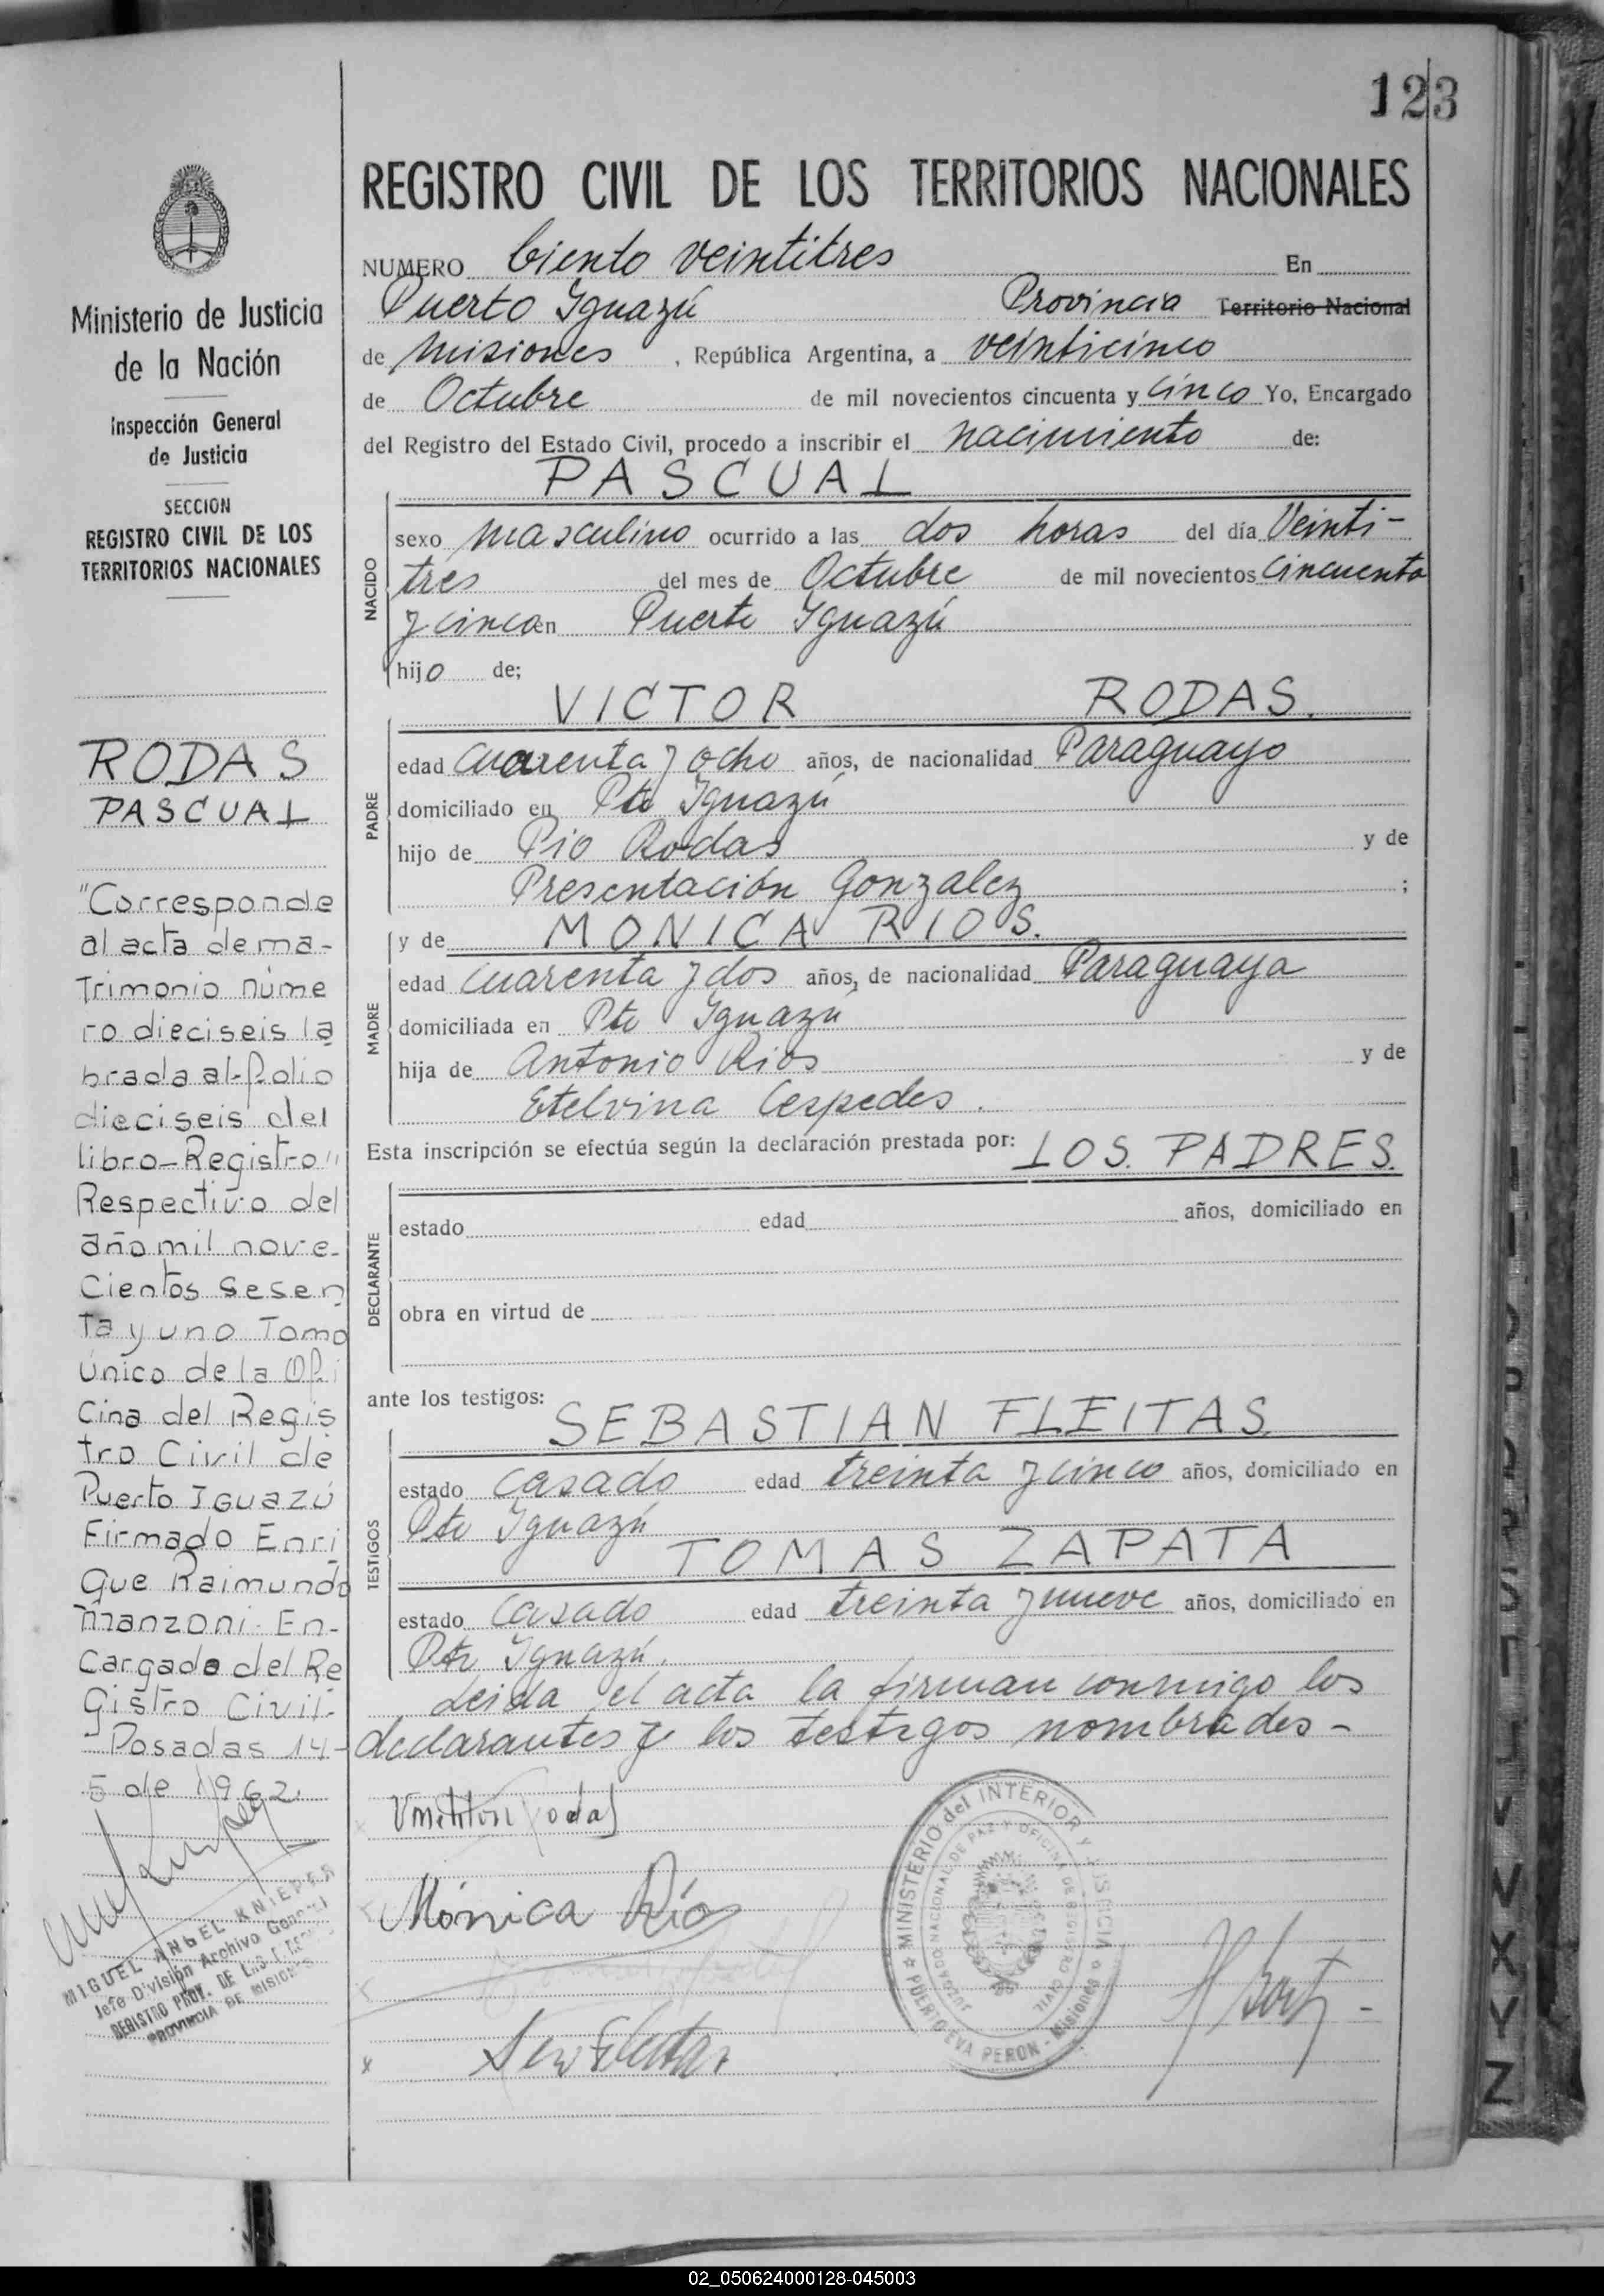 123
REGISTRO CIVIL DE LOS TERRITORIOS NACIONALES
NUMERO Ciento veintitres En
Puerto Iguazú Provincia Territorio Nacional
de Misiones, República Argentina, a veinticinco
de Octubre de mil novecientos cincuenta y cinco Yo, Encargado
del Registro del Estado Civil, procedo a inscribir el nacimiento de:
PASCUAL
NACIDO
sexo masculino ocurrido a las dos horas del día Veinti-
tres del mes de Octubre de mil novecientos Cincuenta
y cinco en Puerto Iguazú
hijo de;
VICTOR RODAS.
PADRE
edad cuarenta y ocho años, de nacionalidad Paraguayo
domiciliado en Pto Iguazú
hijo de Pio Rodas y de
Presentación Gonzalez ;
y de MONICA RIOS.
MADRE
edad cuarenta y dos años, de nacionalidad Paraguaya
domiciliada en Pto Iguazú
hija de Antonio Rios y de
Etelvina Cespedes.
Esta inscripción se efectúa según la declaración prestada por: LOS PADRES.
DECLARANTE
estado edad años, domiciliado en
obra en virtud de
ante los testigos:
SEBASTIAN FLEITAS
TESTIGOS
estado casado edad treinta y cinco años, domiciliado en
Pto Iguazú
TOMAS ZAPATA
estado casado edad treinta y nueve años, domiciliado en
Pto Iguazú.
Leida el acta la firman conmigo los
declarantes y los testigos nombrados-
Mónica Río
MINISTERIO del INTERIOR Y JUSTICIA
JUZGADO NACIONAL DE PAZ Y OFICINA DE REGISTRO CIVIL
PUERTO EVA PERON - Misiones
Ministerio de Justicia
de la Nación
Inspección General
de Justicia
SECCION
REGISTRO CIVIL DE LOS
TERRITORIOS NACIONALES
RODAS
PASCUAL
"Corresponde
al acta de ma-
Trimonio núme
ro dieciseis la
brada al folio
dieciseis del
libro-Registro"
Respectivo del
año mil nove-
Cientos Sesen
Ta y uno Tomo
Único de la Ofi
Cina del Regis
tro Civil de
Puerto IGUAZÚ
Firmado Enri
que Raimundo
Manzoni. En-
Cargado del Re
gistro Civil-
Posadas 14-
5 de 1962.
MIGUEL ANGEL KNIEPER
Jefe División Archivo General
REGISTRO PROV. DE LAS
PROVINCIA DE MISIONES
02_050624000128-045003